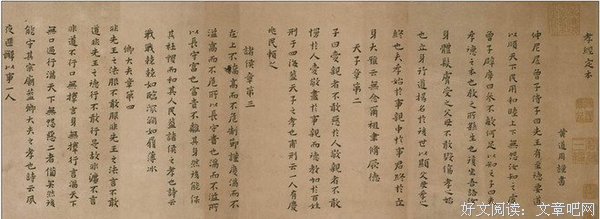 孝經定本
黃道周謹書
仲尼凥曾子侍子曰先王有至德要道
以順天下民用和睦上下無怨汝知之乎
曾子辟席曰參不敏何足以知之子曰夫孝
德之本也教之所繇生也復坐吾語汝
身體髮膚受之父母不敢毀傷孝之始
也立身行道揚名於後世以顯父母孝之
終也夫孝始於事親中於事君終於立
身大雅云無念爾祖聿脩厥德
天子章第二
子曰愛親者不敢惡於人敬親者不敢
慢於人愛敬盡於事親而德教加於百姓
刑于四海蓋天子之孝也甫刑云一人有慶
兆民賴之
諸侯章第三
在上不驕高而不危制節謹度滿而不
溢高而不危所以長守貴也滿而不溢所
以長守富也富貴不離其身然後能保
其社稷而和其人民蓋諸侯之孝也詩云
戰戰兢兢如臨深淵如履薄冰
卿大夫章第四
非先王之法服不敢服非先王之法言不敢
道非先王之德行不敢行是故非法不言
非道不行口無擇言身無擇行言滿天下
無口過行滿天下無怨惡三者備矣然後
能守其宗廟蓋卿大夫之孝也詩云夙
夜匪懈以事一人
好文阅读:文章吧网